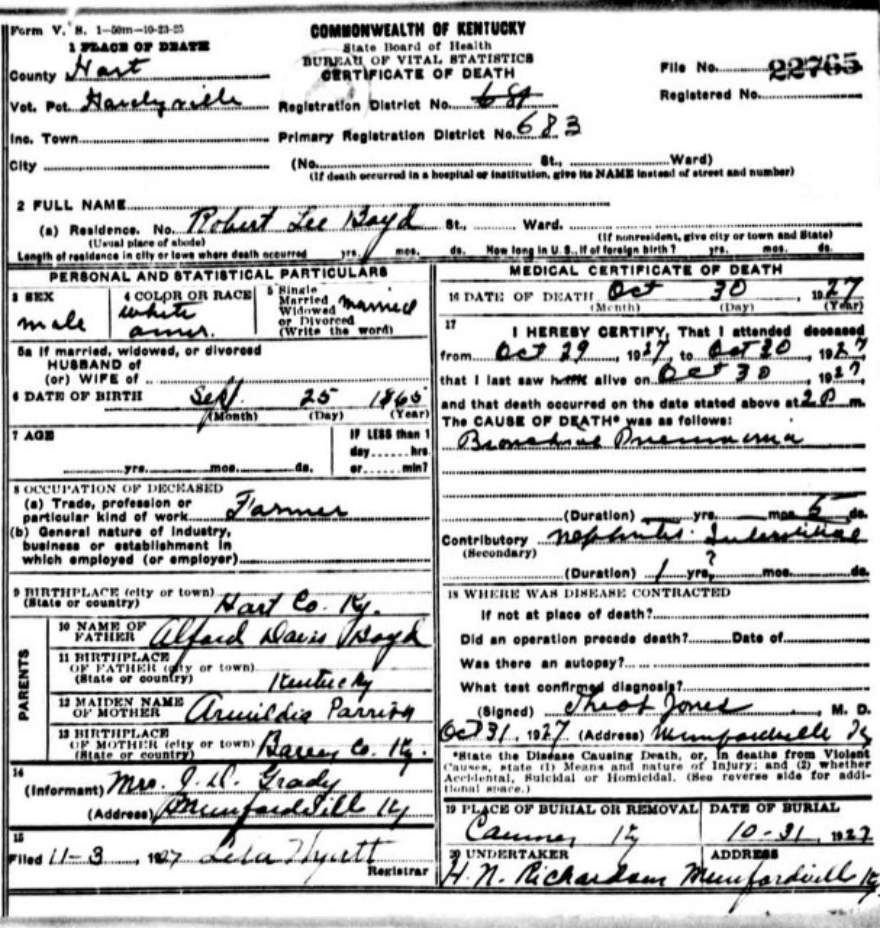 Form V. S. 1-50m-10-23-25
COMMONWEALTH OF KENTUCKY
State Board of Health
BUREAU OF VITAL STATISTICS
CERTIFICATE OF DEATH
1 PLACE OF DEATH
County Hart
File No. 22765
Vot. Pct. Hardyville
Registration District No. 681
Registered No.
Inc. Town
Primary Registration District No. 683
City
(No. St., Ward)
(If death occurred in a hospital or institution, give its NAME instead of street and number)
2 FULL NAME Robert Lee Boyd
(a) Residence. No. St., Ward.
(Usual place of abode) (If nonresident, give city or town and State)
Length of residence in city or town where death occurred yrs. mos. ds. How long in U. S., if of foreign birth? yrs. mos. ds.
PERSONAL AND STATISTICAL PARTICULARS
3 SEX
male
4 COLOR OR RACE
white
amer.
5 Single
Married
Widowed
or Divorced
(Write the word)
married
5a If married, widowed, or divorced
HUSBAND of
(or) WIFE of
6 DATE OF BIRTH Sept. 25 1865
(Month) (Day) (Year)
7 AGE
yrs. mos. ds.
IF LESS than 1
day hrs.
or min?
8 OCCUPATION OF DECEASED
(a) Trade, profession or
particular kind of work Farmer
(b) General nature of industry,
business or establishment in
which employed (or employer)
9 BIRTHPLACE (city or town)
(State or country) Hart Co. Ky.
PARENTS
10 NAME OF
FATHER Alford Davis Boyd
11 BIRTHPLACE
OF FATHER (city or town)
(State or country) Kentucky
12 MAIDEN NAME
OF MOTHER Armildia Parrish
13 BIRTHPLACE
OF MOTHER (city or town)
(State or country) Barren Co. Ky.
14
(Informant) Mrs. J. D. Grady
(Address) Munfordvill Ky
15
Filed 11-3, 1927 Lela Hyatt
Registrar
MEDICAL CERTIFICATE OF DEATH
16 DATE OF DEATH Oct 30, 1927
(Month) (Day) (Year)
17
I HEREBY CERTIFY, That I attended deceased
from Oct 29, 1927, to Oct 30, 1927,
that I last saw him alive on Oct 30, 1927,
and that death occurred on the date stated above at 2 P m.
The CAUSE OF DEATH* was as follows:
Bronchial Pneumonia
(Duration) yrs. mos. 5 ds.
Contributory Nephritis. Interstitial
(Secondary)
(Duration) 1 yrs. ? mos. ds.
18 WHERE WAS DISEASE CONTRACTED
If not at place of death?
Did an operation precede death? Date of
Was there an autopsy?
What test confirmed diagnosis?
(Signed) Jones M. D.
Oct 31, 1927 (Address) Munfordville Ky
*State the Disease Causing Death, or, in deaths from Violent
Causes, state (1) Means and nature of Injury; and (2) whether
Accidental, Suicidal or Homicidal. (See reverse side for addi-
tional space.)
19 PLACE OF BURIAL OR REMOVAL
Canmer Ky
DATE OF BURIAL
10-31, 1927
20 UNDERTAKER
H. N. Richardson
ADDRESS
Munfordvill Ky.